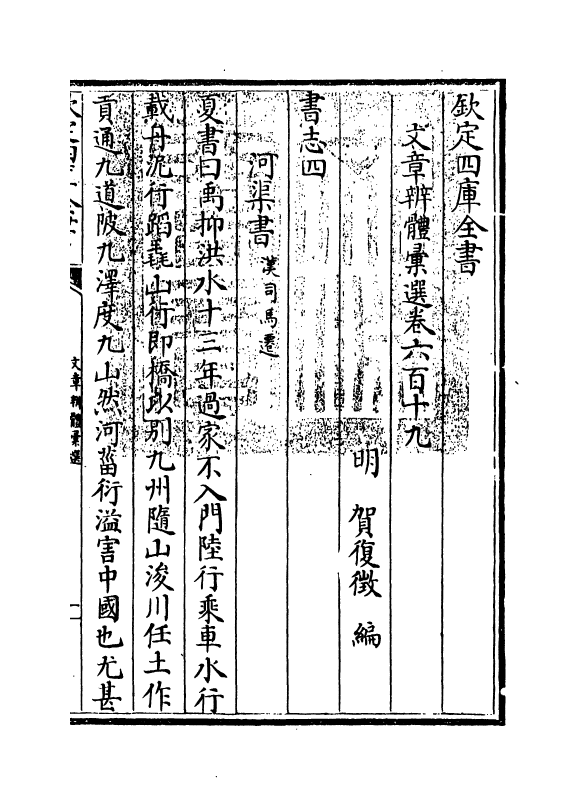 欽定四庫全書
文章辨體彙選卷六百十九
明 賀復徵 編
書志四
河渠書 漢司馬遷
夏書曰禹抑洪水十三年過家不入門陸行乘車水行
載舟泥行蹈毳山行即橋以别九州隨山浚川任土作
貢通九道陂九澤度九山然河菑衍溢害中國也尤甚
文章辨體彙選